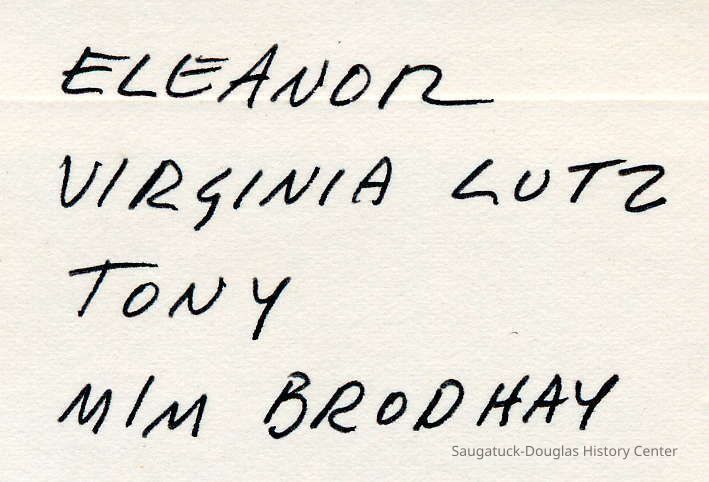 ELEANOR
VIRGINIA LUTZ
TONY
MIM BRODHAY
Saugatuck-Douglas History Center